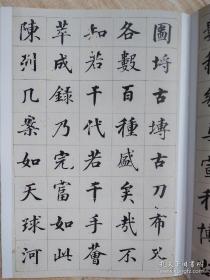 圖埒古塼古刀布尺
各數百種盛矣哉不
知若干代若干手薈
萃成錄乃完富如此
陳列几案如天球河